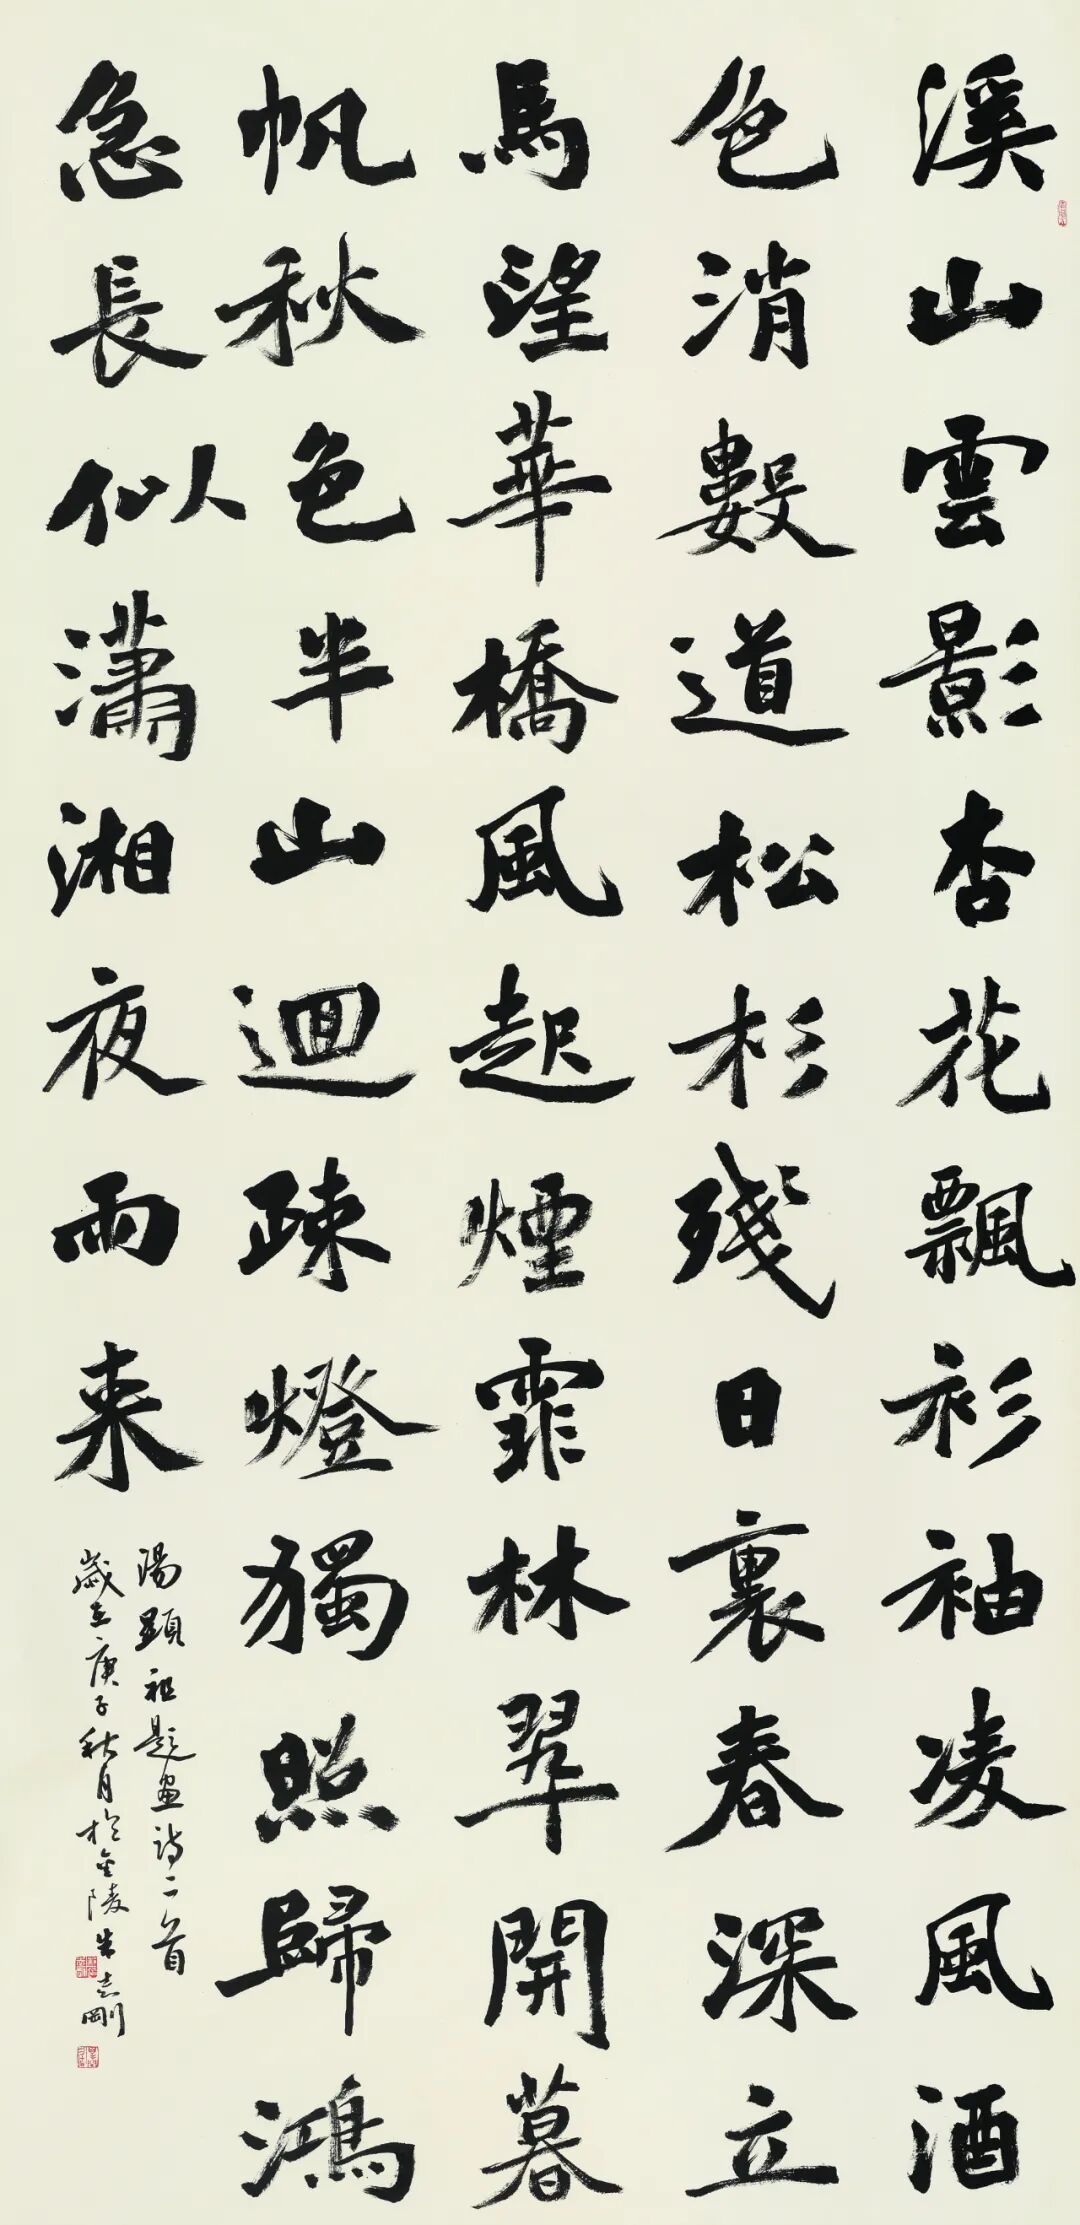 溪山雲影杏花飄衫袖凌風酒
色消數道松杉殘日裏春深立
馬望華橋風起煙霏林翠開暮
帆秋色半山迴疎燈獨照歸鴻
急長似瀟湘夜雨来
湯顯祖題畫詩二首
歲在庚子秋月於金陵朱志剛